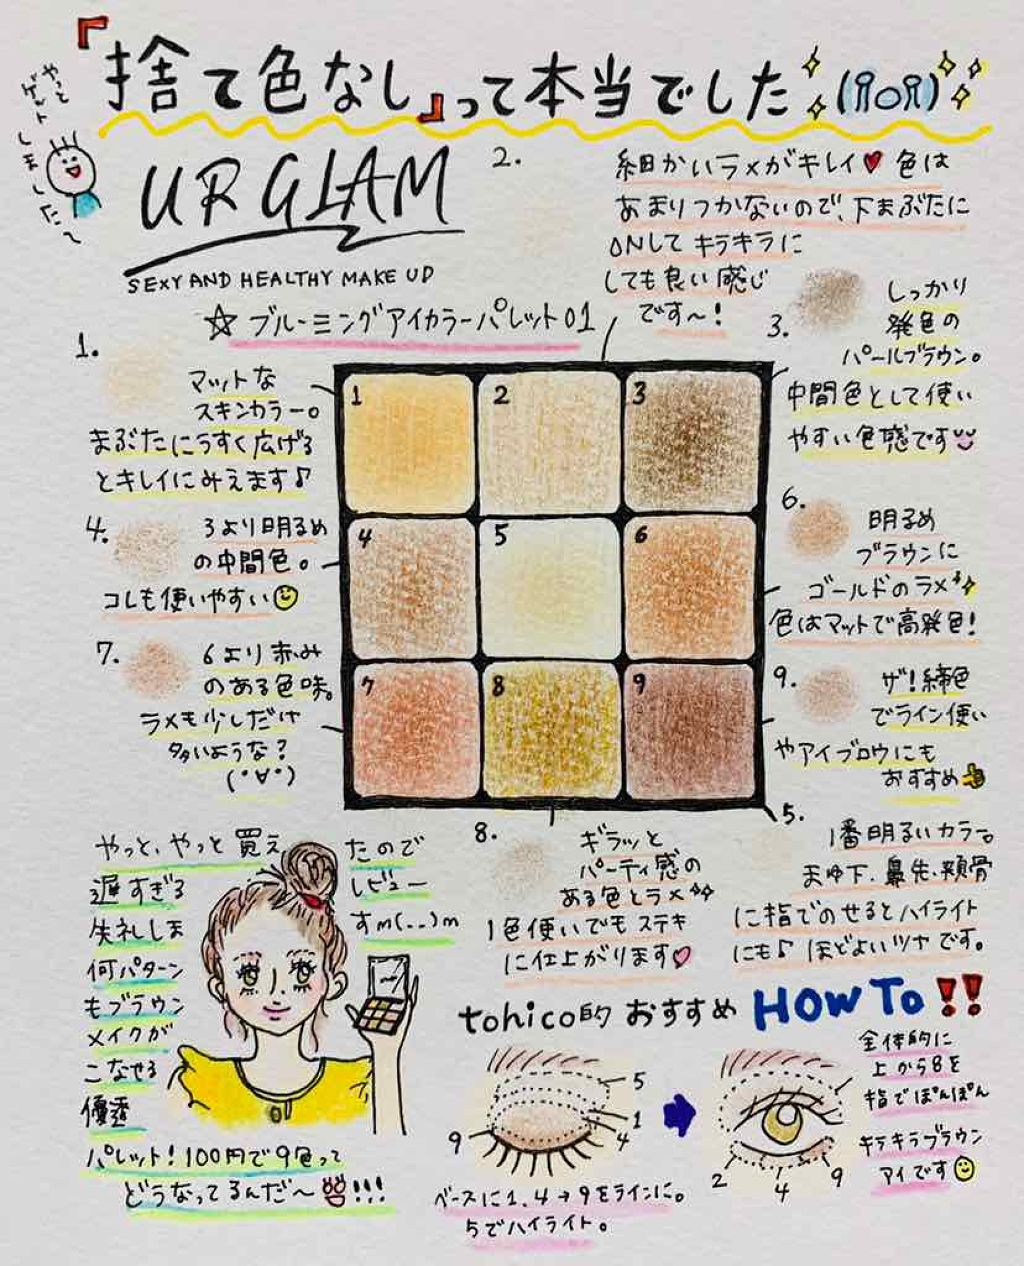 『捨て色なし』って本当でした
やっと
ゲット
しました〜
UR GLAM
SEXY AND HEALTHY MAKE UP
☆ブルーミングアイカラーパレット01
1.
マットな
スキンカラー。
まぶたにうすく広げる
とキレイにみえます♪
2.
細かいラメがキレイ♥色は
あまりつかないので、下まぶたに
ONしてキラキラに
しても良い感じ
です〜!
3.
しっかり
発色の
パールブラウン。
中間色として使い
やすい色感です
4.
3より明るめ
の中間色。
コレも使いやすい
6.
明るめ
ブラウンに
ゴールドのラメ
色はマットで高発色!
7.
6より赤み
のある色味。
ラメも少しだけ
多いような?
(°∀°)
9.
ザ!締色
でライン使い
やアイブロウにも
おすすめ
1 2 3
4 5 6
7 8 9
8.
ギラッと
パーティ感の
ある色とラメ
1色使いでもステキ
に仕上がります♡
5.
1番明るいカラー。
まゆ下、鼻先、頬骨
に指でのせるとハイライト
にも♪ほどよいツヤです。
やっと、やっと買えたので
遅すぎるレビュー
失礼しますm(..)m
何パターン
もブラウン
メイクが
こなせる
優秀
パレット!100円で9色って
どうなってるんだ〜!!!
tohico的おすすめ HOW TO!!
5
1
4
9
ベースに1.4→9をラインに。
5でハイライト。
全体的に
上から8を
指でぽんぽん
キラキラブラウン
アイです
2
4
9